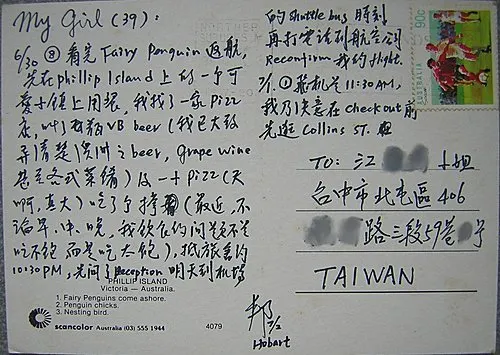 My Girl (39):
6/30 ⑧ 看完 Fairy Penguin 返航,
先在 phillip Island 上的一个可
愛小鎮上用餐, 我找了一家 Pizz
店, 叫了兩瓶 VB beer (我已大致
弄清楚澳洲之 beer, grape wine
甚至各式菜餚) 及一十 Pizz (天
啊, 真大) 吃了个撑 (最近, 不
論早、中、晚, 我飲食的问题不是
吃不飽 而是吃太飽), 抵旅舍約
10:30 PM, 先问了 Reception 明天到机場
PHILLIP ISLAND
Victoria — Australia.
1. Fairy Penguins come ashore.
2. Penguin chicks.
3. Nesting bird.
scancolor Australia (03) 555 1944
4079
的 shuttle bus 時刻
再打電话到航空公司
Reconfirm 我的 flight.
7/1. ① 飛机是 11:30 AM,
我乃决意在 check out 前
先逛 Collins ST.
邦 7/2
Hobart
90c
AUSTRALIA
TO: 江 小姐
台中市北屯區 406
路三段59巷 号
TAIWAN